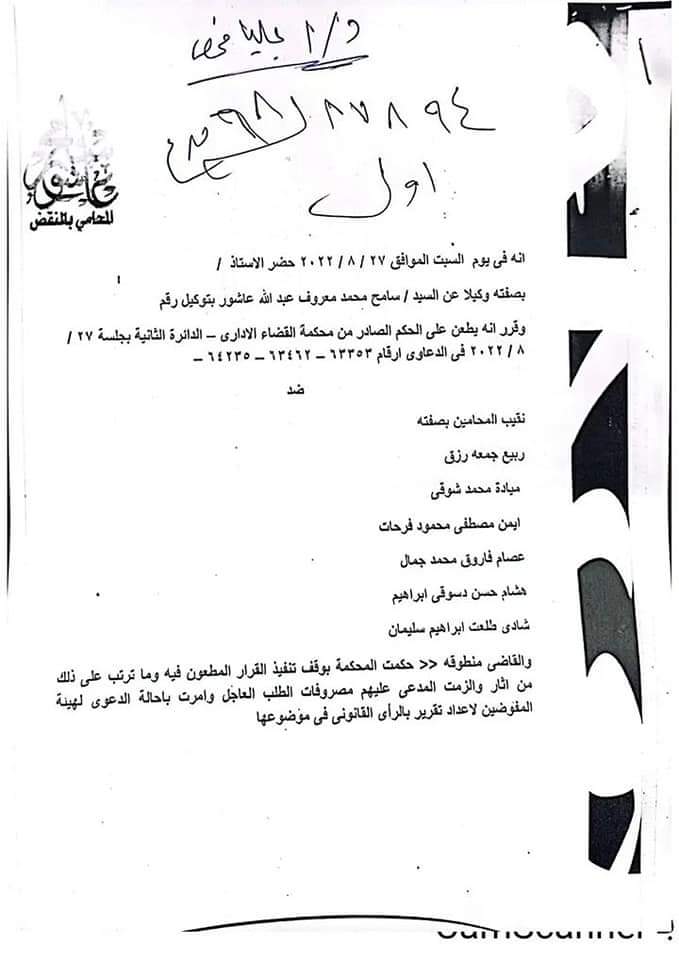 د/١ عليا فحص
٨٧٨٩٤ لسنة ٦٨ ق
اول
عاشور
المحامي بالنقض
انه فى يوم السبت الموافق ٢٧ / ٨ / ٢٠٢٢ حضر الاستاذ /
بصفته وكيلا عن السيد / سامح محمد معروف عبد الله عاشور بتوكيل رقم
وقرر انه يطعن على الحكم الصادر من محكمة القضاء الادارى – الدائرة الثانية بجلسة ٢٧ /
٨ / ٢٠٢٢ فى الدعاوى ارقام ٦٣٣٥٣ – ٦٣٤٦٢ – ٦٤٢٣٥ –
ضد
نقيب المحامين بصفته
ربيع جمعه رزق
ميادة محمد شوقى
ايمن مصطفى محمود فرحات
عصام فاروق محمد جمال
هشام حسن دسوقى ابراهيم
شادى طلعت ابراهيم سليمان
والقاضى منطوقه << حكمت المحكمة بوقف تنفيذ القرار المطعون فيه وما ترتب على ذلك
من اثار والزمت المدعى عليهم مصروفات الطلب العاجل وامرت باحالة الدعوى لهيئة
المفوضين لاعداد تقرير بالرأى القانونى فى موضوعها
CamScanner بـ